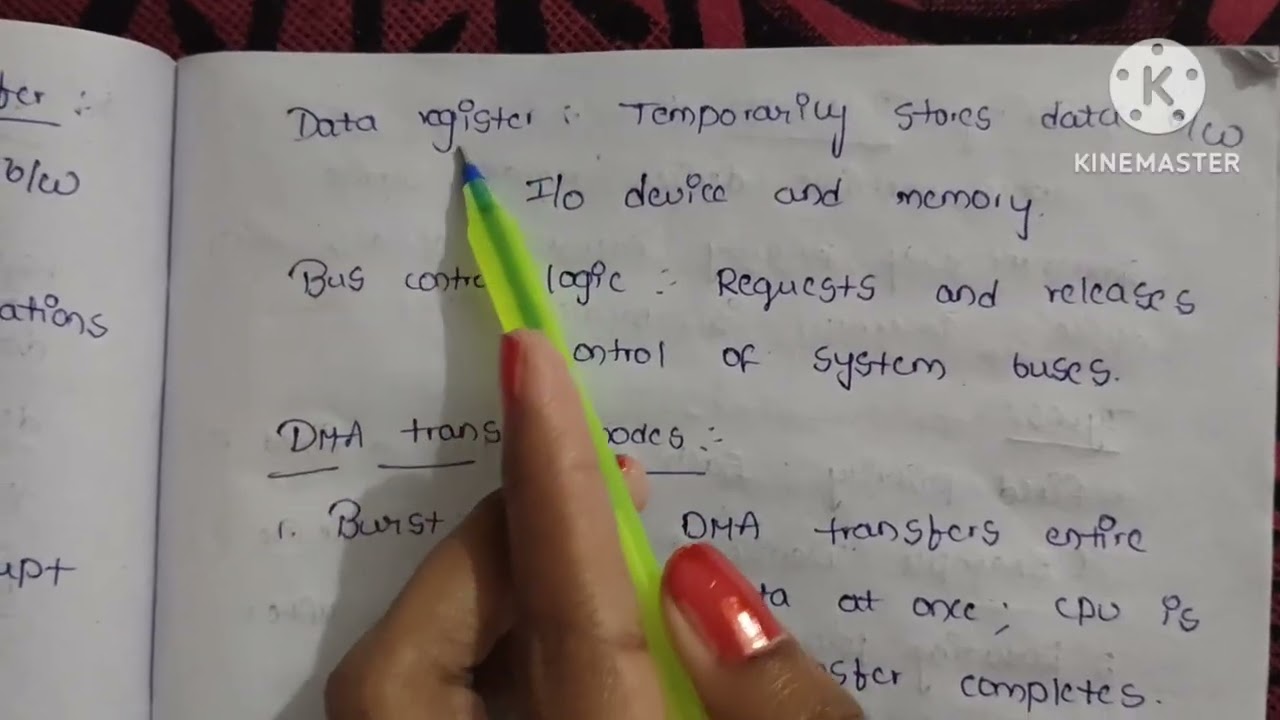 ations
upt
b/w
Data register :- Temporarily stores data /w
I/o device and memory.
Bus logic :- Requests and releases
control of system buses.
DMA modes :-
1. Burst DMA transfers entire
at once; CPU is
completes.
KINEMASTER